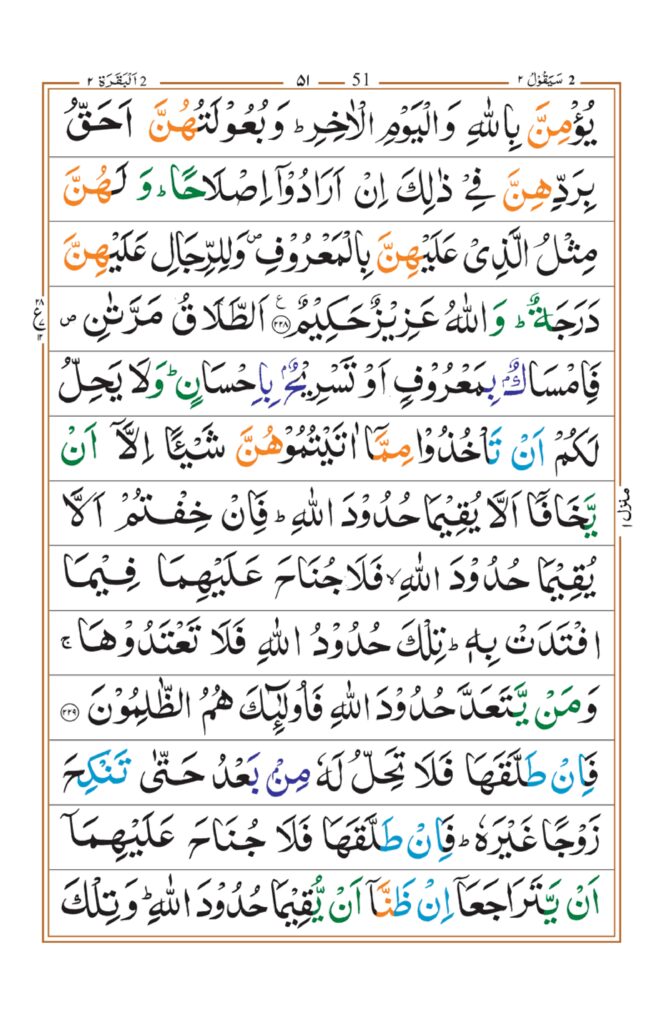 2 سَيَقُوْلُ ٢ 51 ۵۱ 2 اَلْبَقَرَة ٢
يُؤْمِنَّ بِاللّٰهِ وَالْيَوْمِ الْاٰخِرِ ؕ وَبُعُوْلَتُهُنَّ اَحَقُّ
بِرَدِّهِنَّ فِيْ ذٰلِكَ اِنْ اَرَادُوْۤا اِصْلَاحًا ؕ وَ لَهُنَّ
مِثْلُ الَّذِيْ عَلَيْهِنَّ بِالْمَعْرُوْفِ ۪ وَلِلرِّجَالِ عَلَيْهِنَّ
دَرَجَةٌ ؕ وَاللّٰهُ عَزِيْزٌ حَكِيْمٌ ۧ ﴿۲۲۸﴾ اَلطَّلَاقُ مَرَّتٰنِ ص
فَاِمْسَاكٌۢ بِمَعْرُوْفٍ اَوْ تَسْرِيْحٌۢ بِاِحْسَانٍ ؕ وَلَا يَحِلُّ
لَكُمْ اَنْ تَاْخُذُوْا مِمَّاۤ اٰتَيْتُمُوْهُنَّ شَيْـًٔا اِلَّاۤ اَنْ
يَّخَافَاۤ اَلَّا يُقِيْمَا حُدُوْدَ اللّٰهِ ؕ فَاِنْ خِفْتُمْ اَلَّا
يُقِيْمَا حُدُوْدَ اللّٰهِ ۙ فَلَا جُنَاحَ عَلَيْهِمَا فِيْمَا
افْتَدَتْ بِهٖ ؕ تِلْكَ حُدُوْدُ اللّٰهِ فَلَا تَعْتَدُوْهَا ۚ
وَمَنْ يَّتَعَدَّ حُدُوْدَ اللّٰهِ فَاُولٰٓئِكَ هُمُ الظّٰلِمُوْنَ ﴿۲۲۹﴾
فَاِنْ طَلَّقَهَا فَلَا تَحِلُّ لَهٗ مِنْۢ بَعْدُ حَتّٰى تَنْكِحَ
زَوْجًا غَيْرَهٗ ؕ فَاِنْ طَلَّقَهَا فَلَا جُنَاحَ عَلَيْهِمَاۤ
اَنْ يَّتَرَاجَعَاۤ اِنْ ظَنَّاۤ اَنْ يُّقِيْمَا حُدُوْدَ اللّٰهِ ؕ وَتِلْكَ
منزل ۱